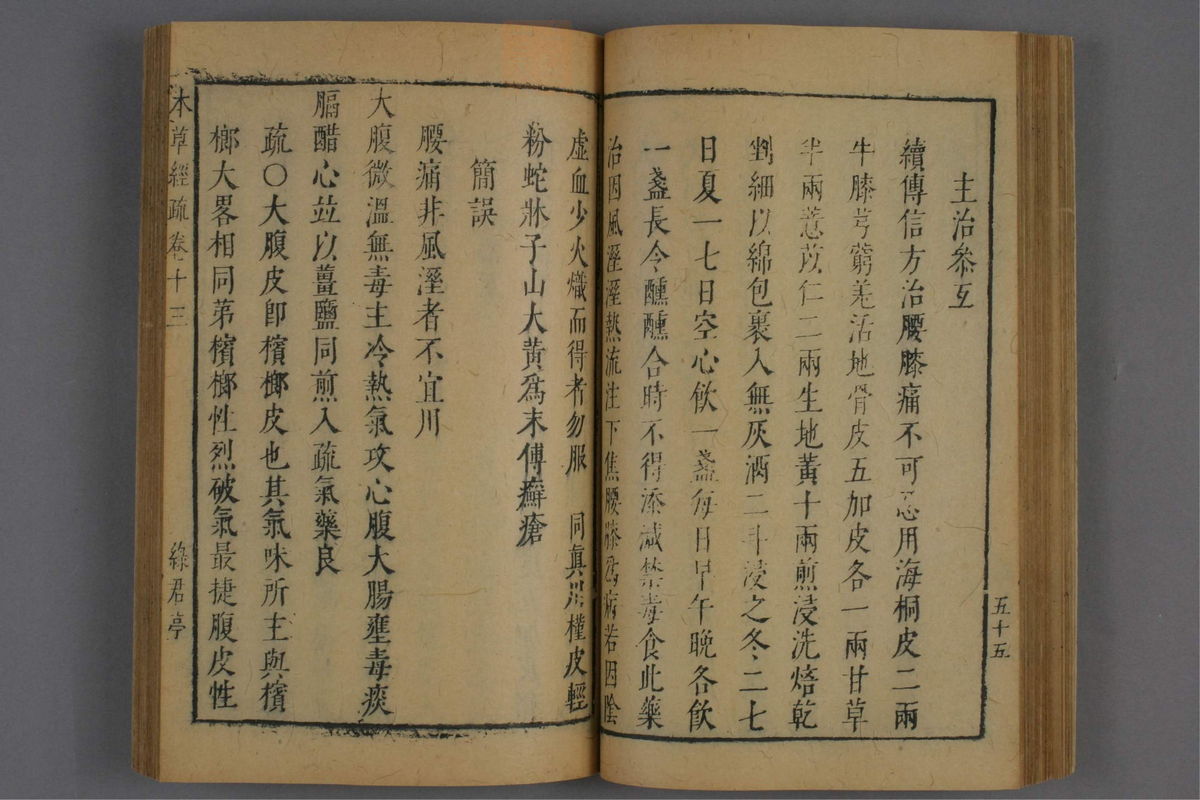 主治叅互
續傳信方治腰膝痛不可忍用海桐皮二兩
牛膝芎藭羌活地骨皮五加皮各一兩甘草
半兩薏苡仁二兩生地黃十兩煎浸洗焙乾
剉細以綿包裹入無灰酒二斗浸之冬二七
日夏一七日空心飲一盞每日早午晚各飲
一盞長令醺醺合時不得添減禁毒食此藥
治因風溼溼熱流注下焦腰膝爲病若因陰
五十五
虛血少火熾而得者勿服 同眞川槿皮輕
粉蛇牀子山大黃爲末傅癬瘡
簡誤
腰痛非風溼者不宜川
大腹微溫無毒主冷熱氣攻心腹大腸壅毒痰
膈醋心竝以薑鹽同煎入疏氣藥良
疏〇大腹皮卽檳榔皮也其氣味所主與檳
榔大畧相同第檳榔性烈破氣最捷腹皮性
本草經疏 卷十三 綠君亭